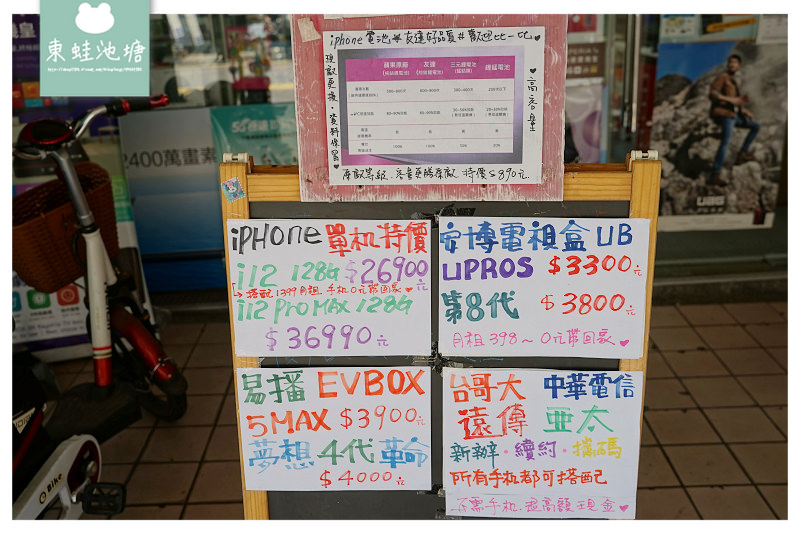 東蛙池塘
iphone電池#友達好品質#歡迎比一比♥
現場更換·資料保留♥
♥高容量
蘋果原廠
友達
三元鋰電池
鋰鈷電池
原廠等級.容量更勝原廠 特價$890元
2400萬畫素
iPHONE 單机特價
i12 128G $26900元
搭配1399月租.手机0元帶回家♥
i12 Pro MAX 128G
$36990元
安博電視盒UB
UPROS $3300元
第8代 $3800元
月租398~0元帶回家♥
易播 EVBOX
5MAX $3900元
夢想4代革命
$4000元
台哥大 中華電信
遠傳 亞太
新辦·續約·攜碼
所有手机都可搭配
不需手机.最高髮現金♥